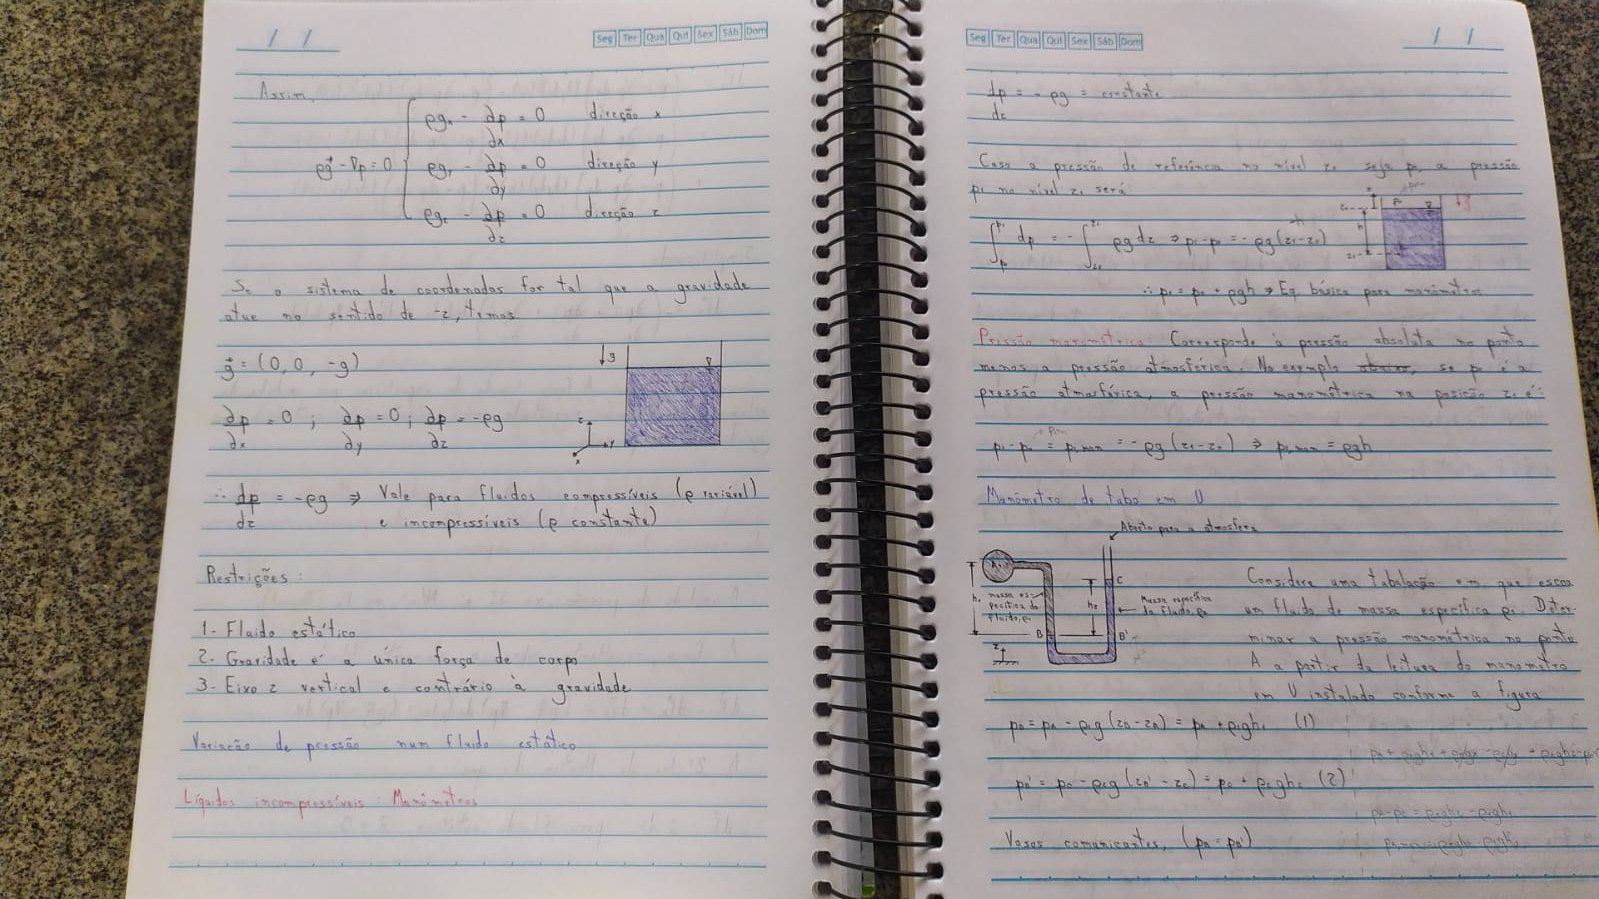 / /
Seg Ter Qua Qui Sex Sáb Dom
Assim,
ρg⃗ - ∇p = 0
ρgₓ - ∂p/∂x = 0 direção x
ρgᵧ - ∂p/∂y = 0 direção y
ρg_z - ∂p/∂z = 0 direção z
Se o sistema de coordenadas for tal que a gravidade
atue no sentido de -z, temos
g⃗ = (0, 0, -g)
g
∂p/∂x = 0 ; ∂p/∂y = 0 ; ∂p/∂z = -ρg
z
y
x
∴ dp/dz = -ρg ⇒ Vale para fluidos compressíveis (ρ variável)
e incompressíveis (ρ constante)
Restrições:
1- Fluido estático
2- Gravidade é a única força de corpo
3- Eixo z vertical e contrário à gravidade
Variação de pressão num fluido estático
Líquidos incompressíveis: Manômetros
Seg Ter Qua Qui Sex Sáb Dom
/ /
dp/dz = - ρg = constante
Caso a pressão de referência no nível z₀ seja p₀, a pressão
p₁ no nível z₁ será:
∫ dp = - ∫ ρg dz ⇒ p₁ - p₀ = - ρg(z₁-z₀)
-h
g
h
∴ p₁ = p₀ + ρgh ⇒ Eq. básica para manômetros
Pressão manométrica: Corresponde à pressão absoluta no ponto
menos a pressão atmosférica. No exemplo, se p₀ é a
pressão atmosférica, a pressão manométrica na posição z₁ é:
p₁ - p₀ = p₁,man = - ρg(z₁-z₀) ⇒ p₁,man = ρgh
Manômetro de tubo em U
Aberto para a atmosfera
A
C
h₁
massa es-
pecífica do
fluido, ρ₁
h₂
Massa específica
do fluido, ρ₂
B
B'
z
Considere uma tubulação em que escoa
um fluido de massa específica ρ₁. Deter-
minar a pressão manométrica no ponto
A a partir da leitura do manômetro
em U instalado conforme a figura
p_B = p_A - ρ₁g(z_B - z_A) = p_A + ρ₁gh₁ (1)
p_B' = p_C - ρ₂g(z_B' - z_C) = p_C + ρ₂gh₂ (2)
Vasos comunicantes, (p_B = p_B')